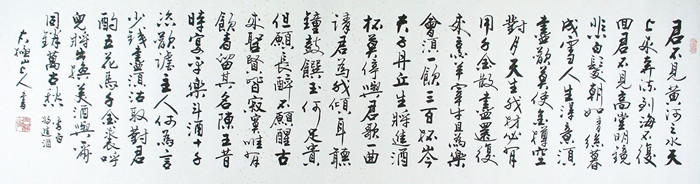 君不見黄河之水天
上来奔流到海不復
回君不見高堂明鏡
悲白髮朝如青絲暮
成雪人生得意須
盡歡莫使金樽空
對月天生我材必有
用千金散盡還復
来烹羊宰牛且為樂
會須一飲三百杯岑
夫子丹丘生將進酒
杯莫停與君歌一曲
請君為我傾耳聽
鐘鼓饌玉何足貴
但願長醉不願醒古
来聖賢皆寂寞唯有
飲者留其名陳王昔
時宴平樂斗酒十千
恣歡謔主人何為言
少錢盡須沽取對君
酌五花馬千金裘呼
兒將出換美酒與爾
同銷萬古愁
李白
將進酒
山人書